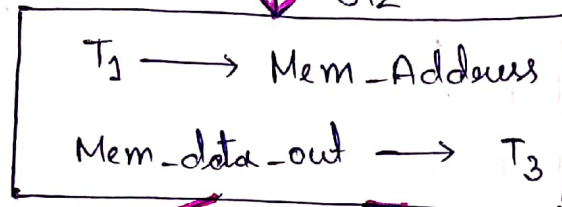 T₁ → Mem_Address
Mem_data_out → T₃